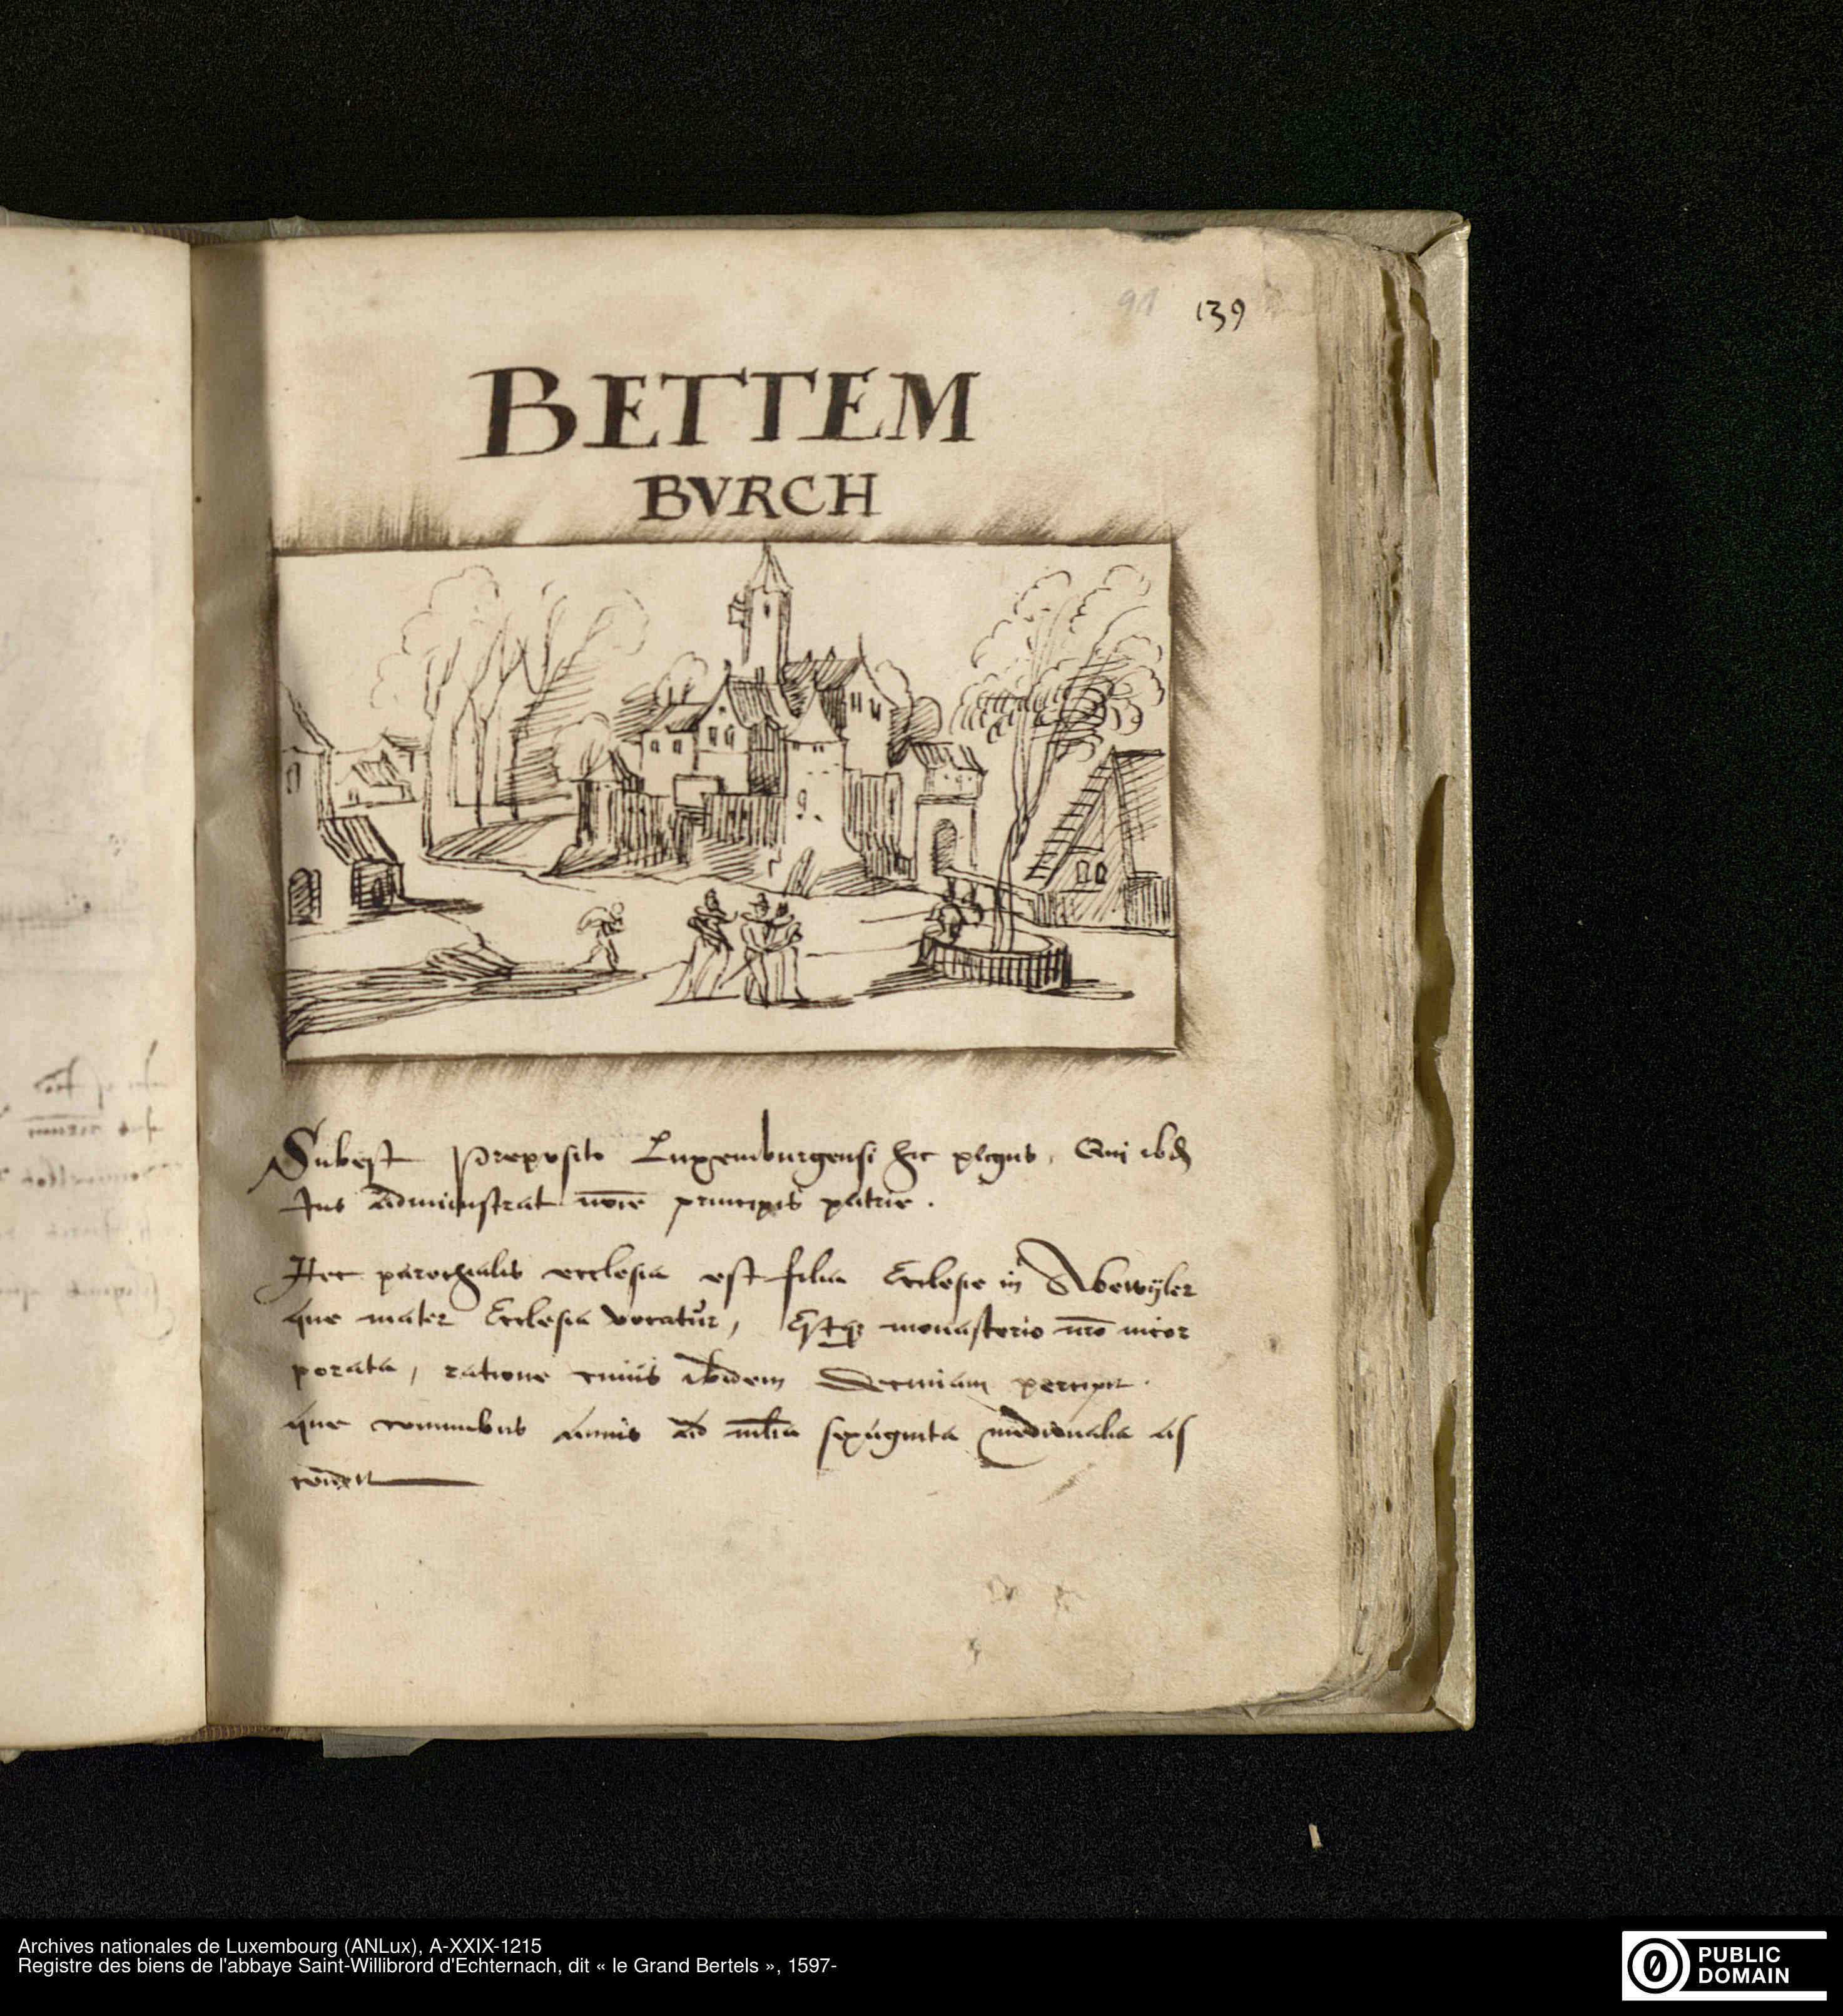 91 139
BETTEM
BVRCH
Subest Preposito Luxemburgensi hic pagus, Qui ibd
Jus administrat noie principis patrie.
Hec parochialis ecclesia est filia Ecclesie in Abewyler
que mater Ecclesia vocatur, Estq monasterio nro incor
porata, ratione cuius ibidem Decimam percipit.
que communibus annis ad mltia sexaginta medionalia as
Archives nationales de Luxembourg (ANLux), A-XXIX-1215
Registre des biens de l'abbaye Saint-Willibrord d'Echternach, dit « le Grand Bertels », 1597-
PUBLIC
DOMAIN